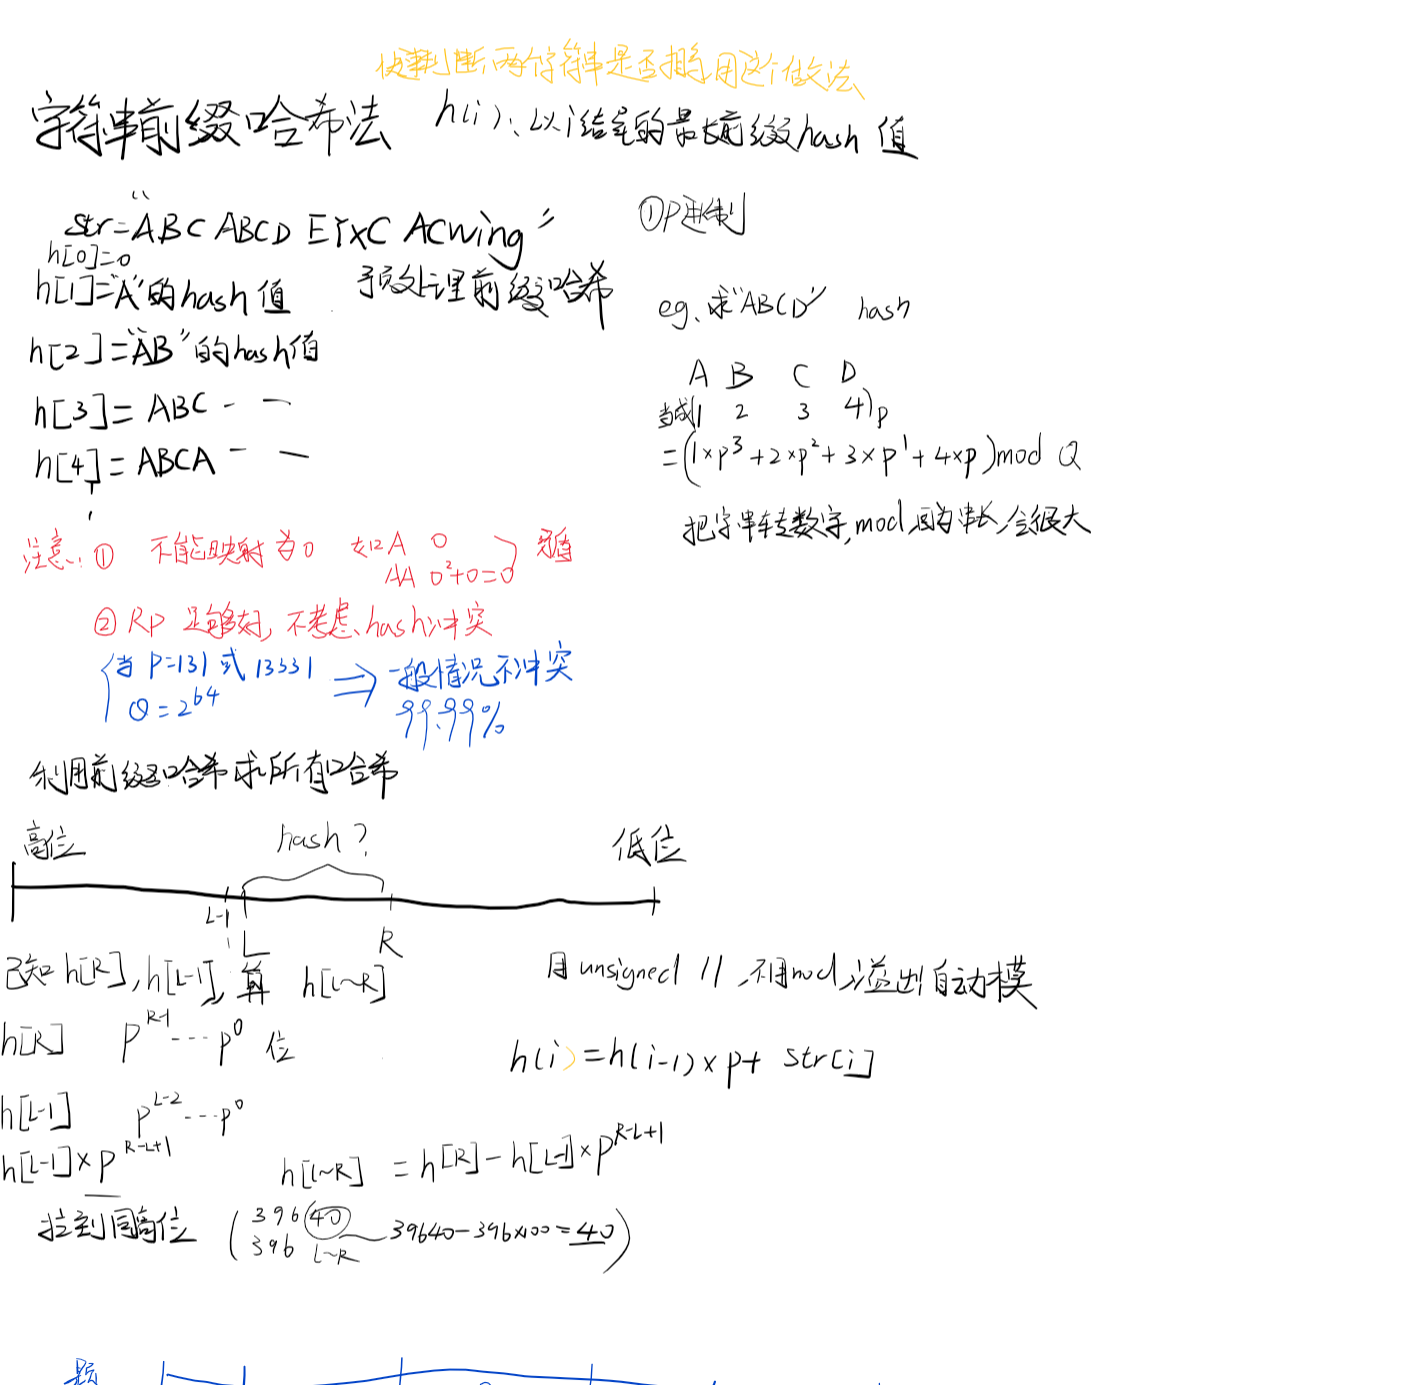 快速判断两个字符串是否相等用这个做法
字符串前缀哈希法 h(i): 以i结尾的最长前缀hash 值
str="ABC ABCD EYXC ACwing"
h[0]=0
h[1]="A"的hash值
h[2]="AB"的hash值
h[3]= ABC - -
h[4]= ABCA - -
预处理前缀哈希
①P进制
eg、求"ABCD" hash
A B C D
当成(1 2 3 4)p
=(1×p³+2×p²+3×p¹+4×p)mod Q
把字串转数字,mod,因为串长,会很大
注意:① 不能映射为0 如A 0
AA 0²+0=0 矛盾
② Rp 足够好,不考虑hash冲突
当 P=131 或 13331 ⇒ 一般情况不冲突
Q=2^64
99.99%
利用前缀哈希求所有哈希
高位 hash? 低位
L-1 L R
已知h[R],h[L-1],算 h[L~R]
用unsigned ll,不用mod,溢出自动模
h[R] p^R-1 ··· p^0 位
h(i)=h(i-1)×p+ str[i]
h[L-1] p^L-2 ··· p^0
h[L-1]×p^R-L+1
h[L~R] = h[R]-h[L-1]×p^R-L+1
拉到同高位 (39640 39640-396×100=40)
396 L~R
题